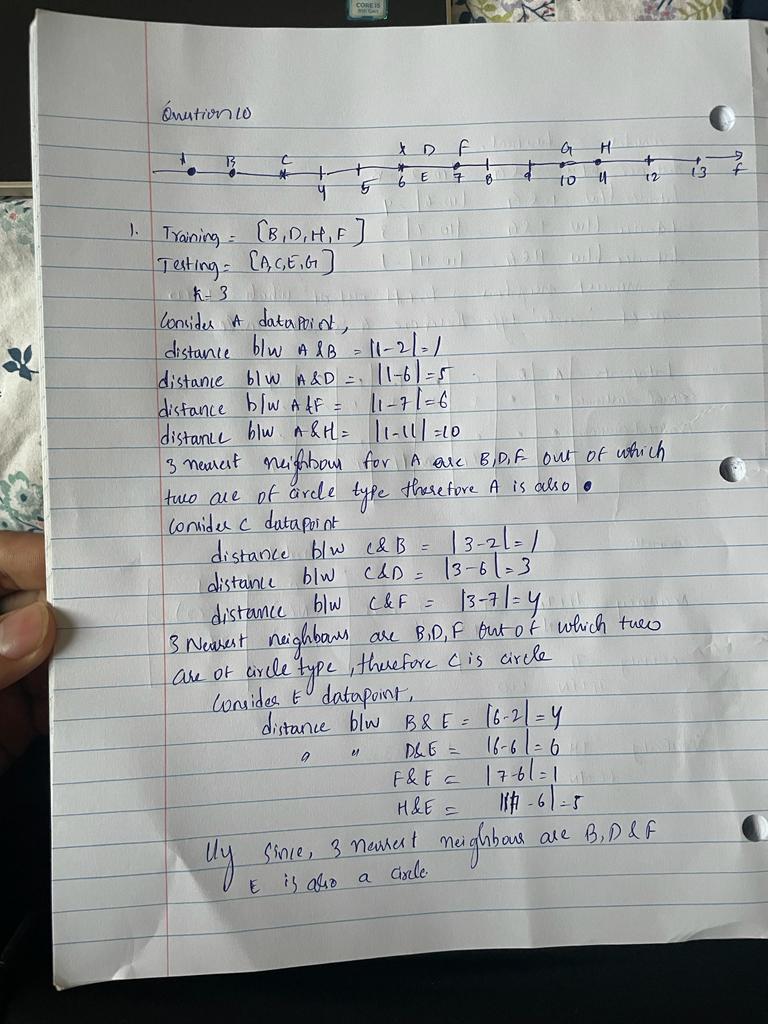 CORE i5
Question 10
A B C X D F G H
4 5 6 E 7 8 9 10 11 12 13 f
1. Training = [B, D, H, F]
Testing = [A, C, E, G]
K = 3
Consider A datapoint,
distance b/w A & B = |1-2| = 1
distance b/w A & D = |1-6| = 5
distance b/w A & F = |1-7| = 6
distance b/w A & H = |1-11| = 10
3 nearest neighbour for A are B, D, F out of which
two are of circle type therefore A is also •
Consider C datapoint
distance b/w C & B = |3-2| = 1
distance b/w C & D = |3-6| = 3
distance b/w C & F = |3-7| = 4
3 Nearest neighbours are B, D, F out of which two
are of circle type, therefore C is circle
Consider E datapoint,
distance b/w B & E = |6-2| = 4
" " D & E = |6-6| = 6
F & E = |7-6| = 1
H & E = |11-6| = 5
lly since, 3 nearest neighbours are B, D & F
E is also a circle.